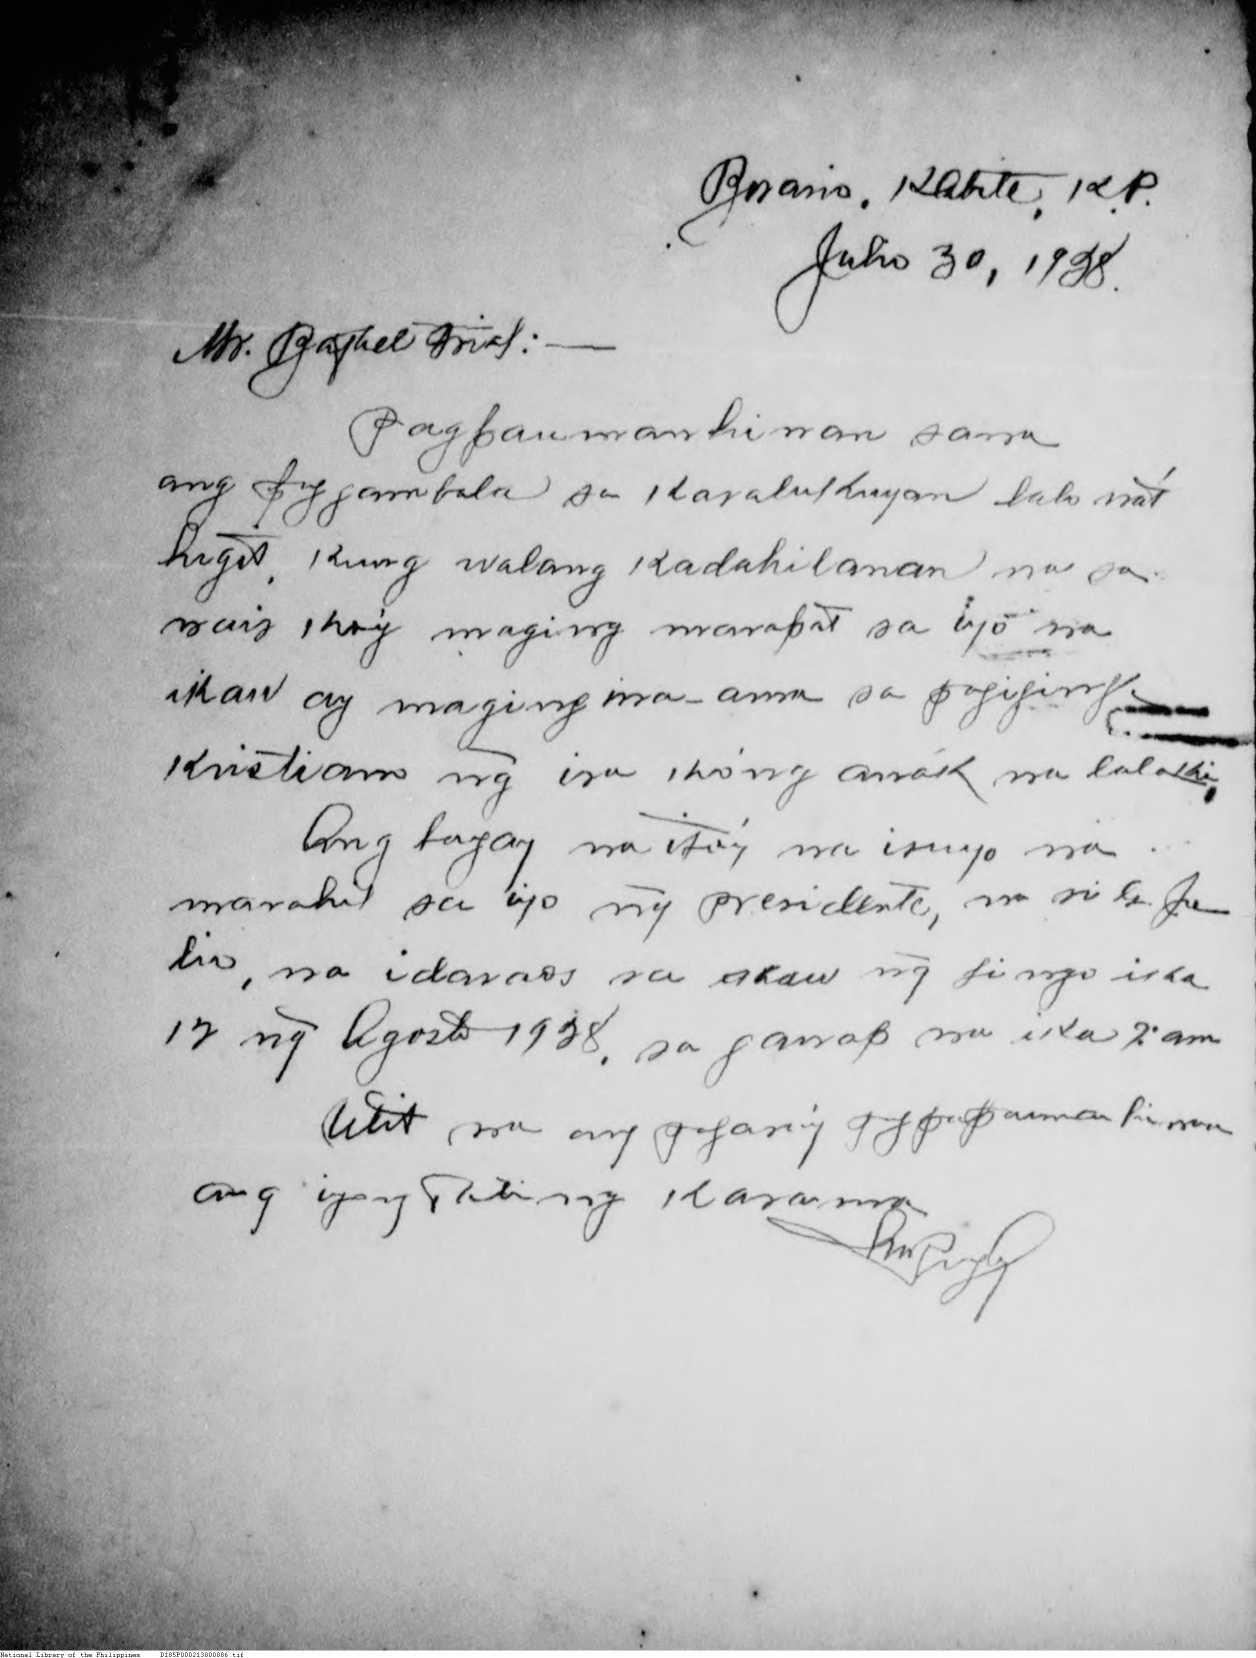 Rosario, Kabite, K.P.
Julio 30, 1938.
Mr. Raphel Trias:—
Pagpaumanhinan sana
ang paggambala sa Karalukuyan lalo nát
higit, Kung walang Kadahilanan na sa
nais Kóy maging marapat sa iyo na
ikaw ay maging ina-ama sa pagiging
Kristiano ng̃ isa Kóng anák na lalaki,
Ang bagay na itóy na isuyo na
marahil sa iyo ng̃ presidente, na si G. Ju
lio, na idaraos sa araw ng̃ lingo ika
17 ng̃ Agosto 1938, sa ganap na ika 7: am
Ulit na ang pagpapaumanhinan
ang iyong Kasama